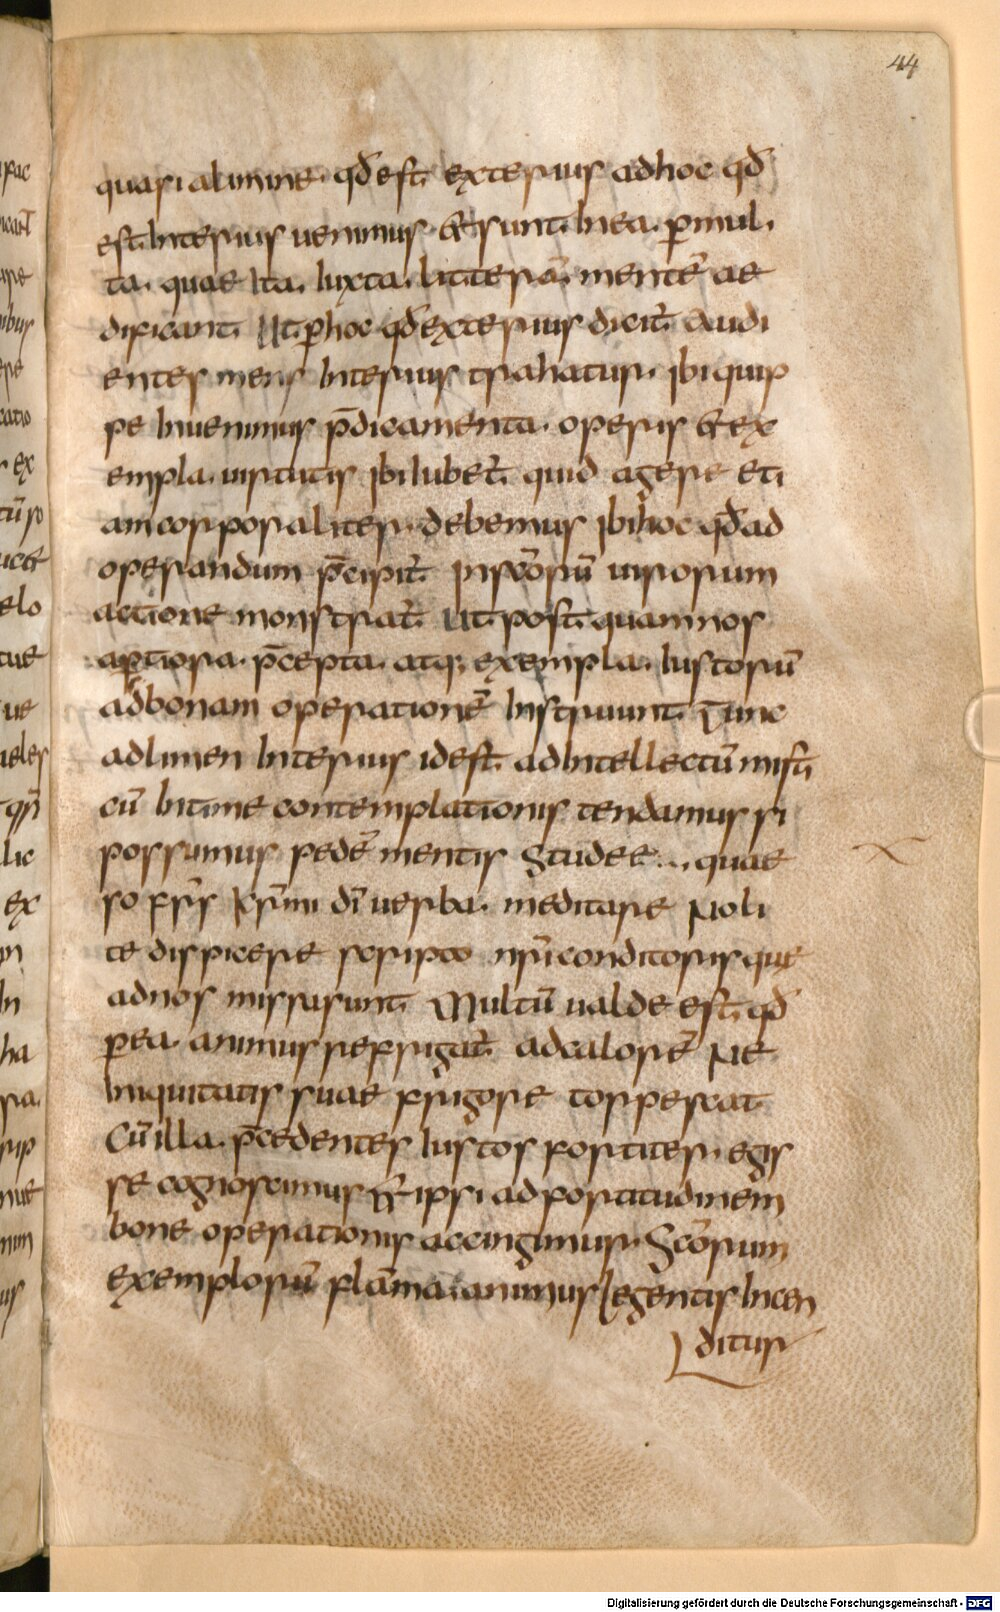 44
quasi alimine. qđ est exterius adhoc qđ
est. Interius uenimus & sunt. In ea. ꝑmul.
ta. quae Ita. Iuxta. litterā. mentē ae
dificant. Ut. ꝑhoc qđ exterius dicit̄. audi
entes mens Interius trahatur. Ibi quip
pe Inuenimus p̄dicamenta. operis & ex
empla. uirtutis Ibi Iubet̄. quid agere eti
am corporaliter. debemus Ibi hoc qđ ad
operandum p̄cipit̄. In sc̄orū uirorum
actione monstrat̄. Ut. post. quam nos
aꝑtiora. p̄cepta. atq; exempla. Iustorū
ad bonam operationē Instruunt. Tunc
ad limen Interius id est. ad Intellectū misti
cū Intime contemplationis tendamus si
possumus pedē mentis Studete... quae
so fr̄s k̄rmi dn̄i uerba. meditare Noli
te dispicere scripta nr̄i conditoris que
ad nos missa sunt. Multū ualde est. qđ
ꝑ ea. animus refrigat̄. ad calorē Ne
Iniquitatis suae frigore torpescat
Cū illa. p̄cedentes Iustos fortiter. egis
se cognoscimus & ipsi ad fortitudinem
bone operationis accingimur. Sc̄orum
exemplorū flāma. animus legentis Incen
ditur
Digitalisierung gefördert durch die Deutsche Forschungsgemeinschaft - DFG